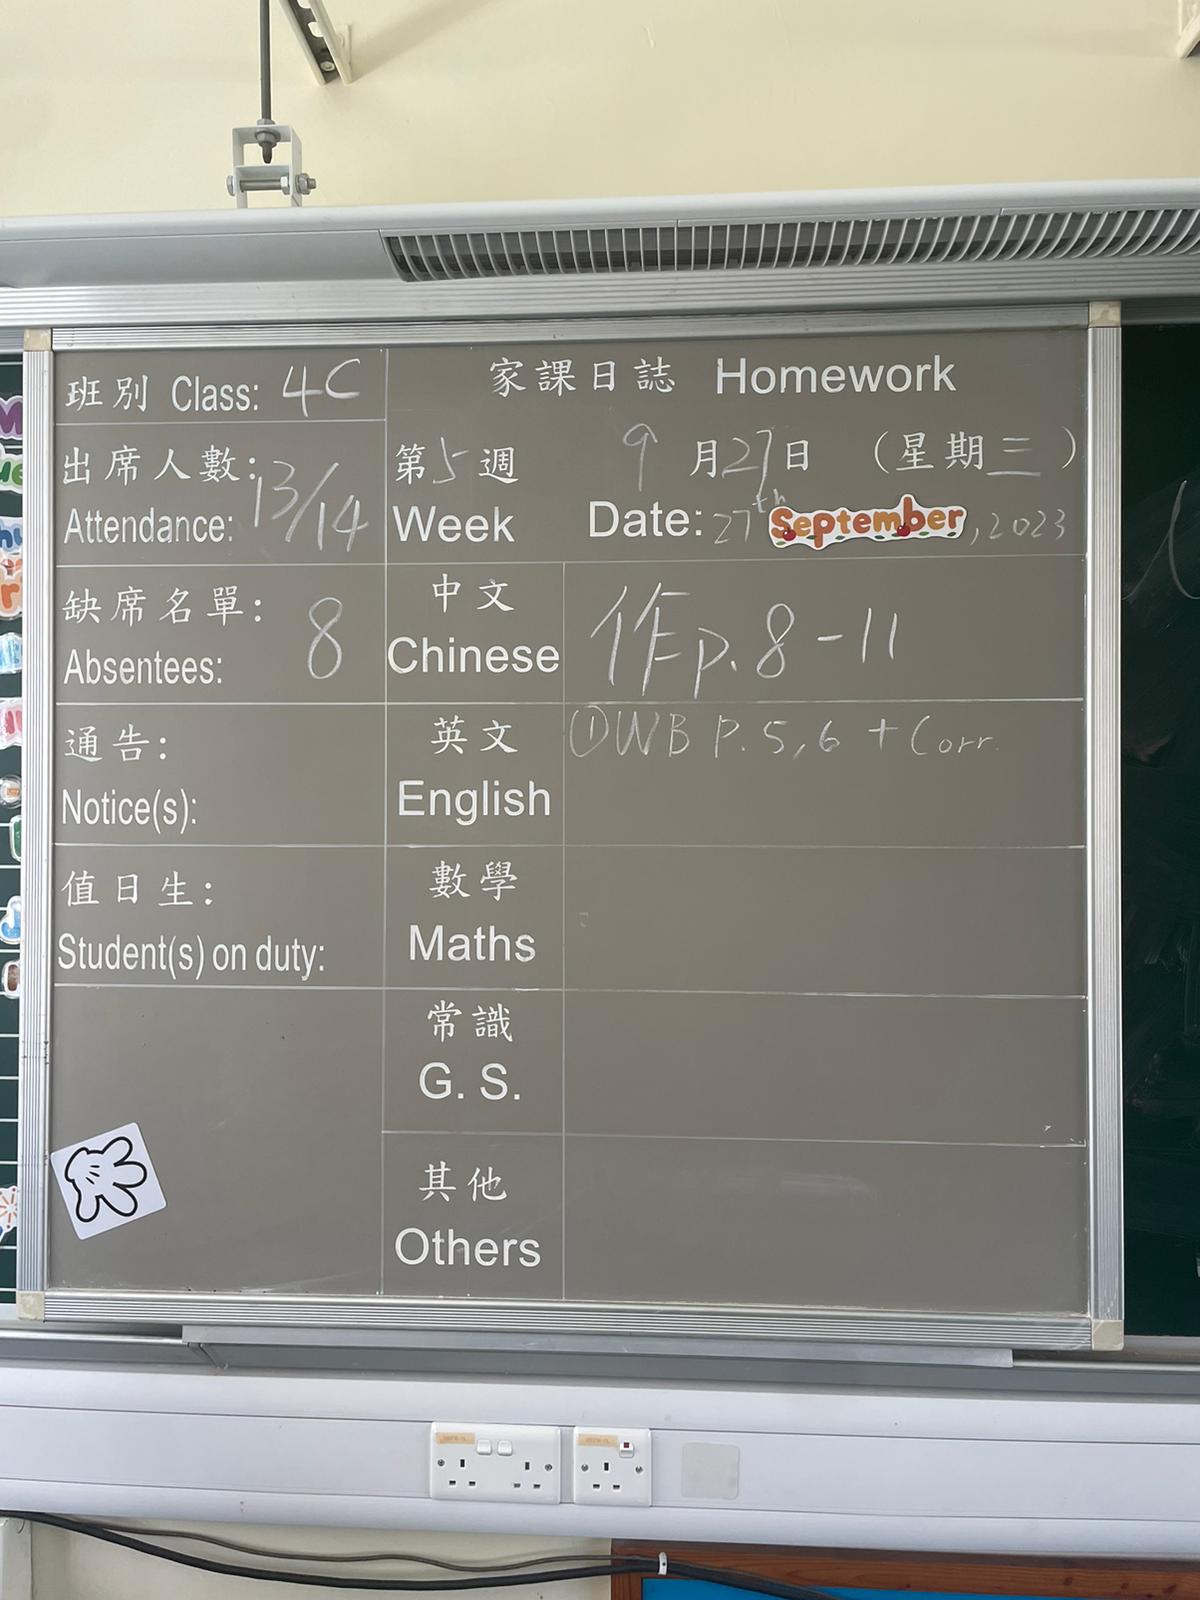 班別 Class: 4C
出席人數:
Attendance: 13/14
缺席名單:
Absentees: 8
通告:
Notice(s):
值日生:
Student(s) on duty:
家課日誌 Homework
第5週 9月27日 (星期三)
Week Date: 27th September, 2023
中文
Chinese
作 p. 8-11
英文
English
①WB P. 5,6 + Corr.
數學
Maths
常識
G. S.
其他
Others